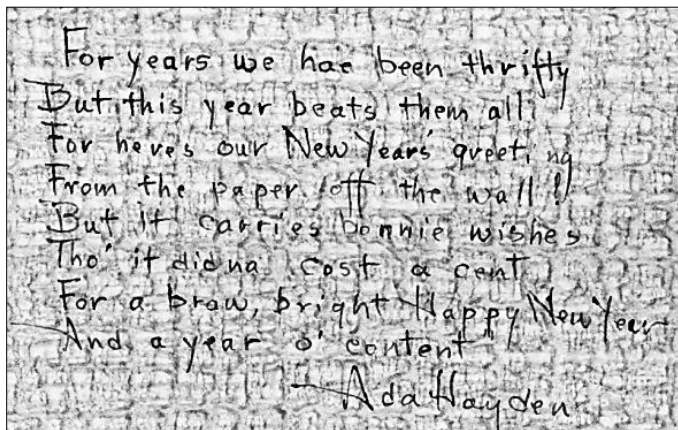 For years we hae been thrifty
But this year beats them all!
For here's our New Years' greeting
From the paper off the wall!
But it carries bonnie wishes
Tho' it didna cost a cent
For a braw, bright Happy New Year
And a year o' content
— Ada Hayden